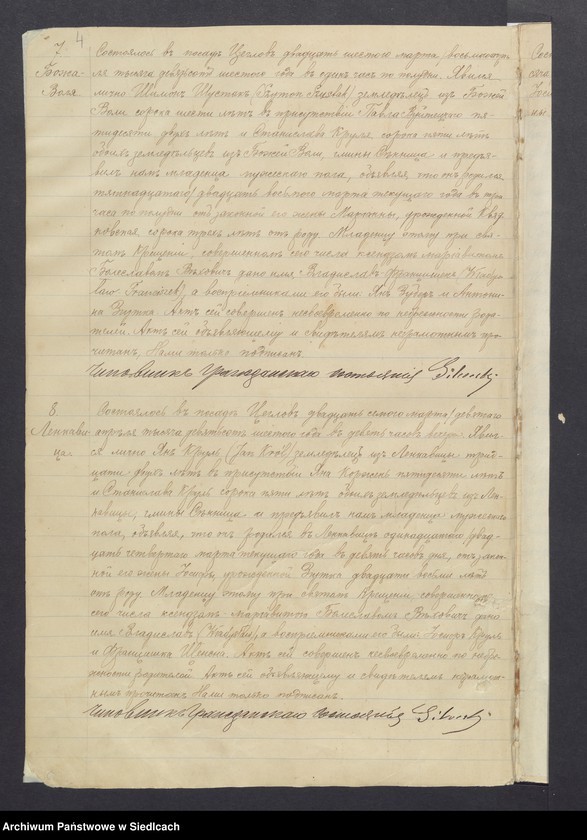 4
7.
Божа-
Воля
Состоялось въ посадѣ Цегловъ двадцать шестого марта/ восьмого апрѣ-
ля тысяча девятьсотъ шестого года въ одинъ часъ по полудни. Явился
лично Шимонъ Шустакъ (Szymon Szustak) земледѣлецъ изъ Божей
Воли сорока шести лѣтъ въ присутствіи Павла пя-
тидесяти двухъ лѣтъ и Станислава Круля сорока пяти лѣтъ
обоихъ земледѣльцевъ изъ Божей Воли, гмины Сѣнница и предъя-
вилъ намъ младенца мужескаго пола, объявляя, что онъ родился
пятнадцатого/ двадцать восьмого марта текущаго года въ три
часа по полудни отъ законной его жены Маріанны, урожденной
сорока трехъ лѣтъ отъ роду. Младенцу этому при свя-
томъ крещеніи, совершенномъ сего числа ксендзомъ маріавитомъ
Болеславомъ дано имя Владиславъ Францишекъ (Włady-
sław Franciszek), а воспріемниками его были Янъ и Антони-
на Згутка. Актъ сей совершенъ несвоевременно по небрежности роди-
телей. Актъ сей объявляющему и свидѣтелямъ неграмотнымъ про-
читанъ, Нами только подписанъ.
Чиновникъ гражданскаго состоянія
8.
Лекави-
ца.
Состоялось въ посадѣ Цегловъ двадцать седьмого марта/ девятого
апрѣля тысяча девятьсотъ шестого года въ девять часовъ вечера. Явил-
ся лично Янъ Круль, (Jan Król) земледѣлецъ изъ трид-
цати двухъ лѣтъ въ присутствіи Яна пятидесяти лѣтъ
и Станислава Круля сорока пяти лѣтъ обоихъ земледѣльцевъ изъ
гмины Сѣнница и предъявилъ намъ младенца мужескаго
пола, объявляя, что онъ родился въ одинадцатого/ двад-
цать четвертого марта текущаго года въ девять часовъ дня, отъ закон-
ной его жены урожденной Згутка двадцати восьми лѣтъ
отъ роду. Младенцу этому при святомъ крещеніи совершенномъ
сего числа ксендзомъ маріавитомъ Болеславомъ дано
имя Владиславъ а воспріемниками его были Круль
и Францишка Актъ сей совершенъ несвоевременно по небре-
жности родителей. Актъ сей объявляющему и свидѣтелямъ неграмот-
нымъ прочитанъ Нами только подписанъ.
Чиновникъ гражданскаго состоянія
Archiwum Państwowe w Siedlcach